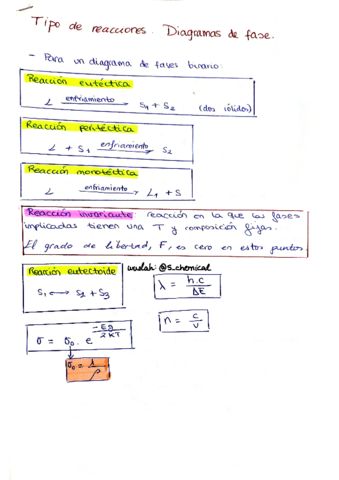 Tipo de reacciones. Diagramas de fase.
- Para un diagrama de fases binario:
Reacción eutéctica
L enfriamiento → S1 + S2 (dos sólidos)
Reacción peritéctica
L + S1 enfriamiento → S2
Reacción monotéctica
L enfriamiento → L1 + S
Reacción invariante: reacción en la que las fases
implicadas tienen una T y composición fijas.
El grado de libertad, F, es cero en estos puntos.
Reacción eutectoide
S1 ↔ S2 + S3
wuolah: @s_chemical
λ = h.c / ΔE
n = c / v
σ = σ0 . e^(-Eg / 2KT)
σ0 = 1 / ρ